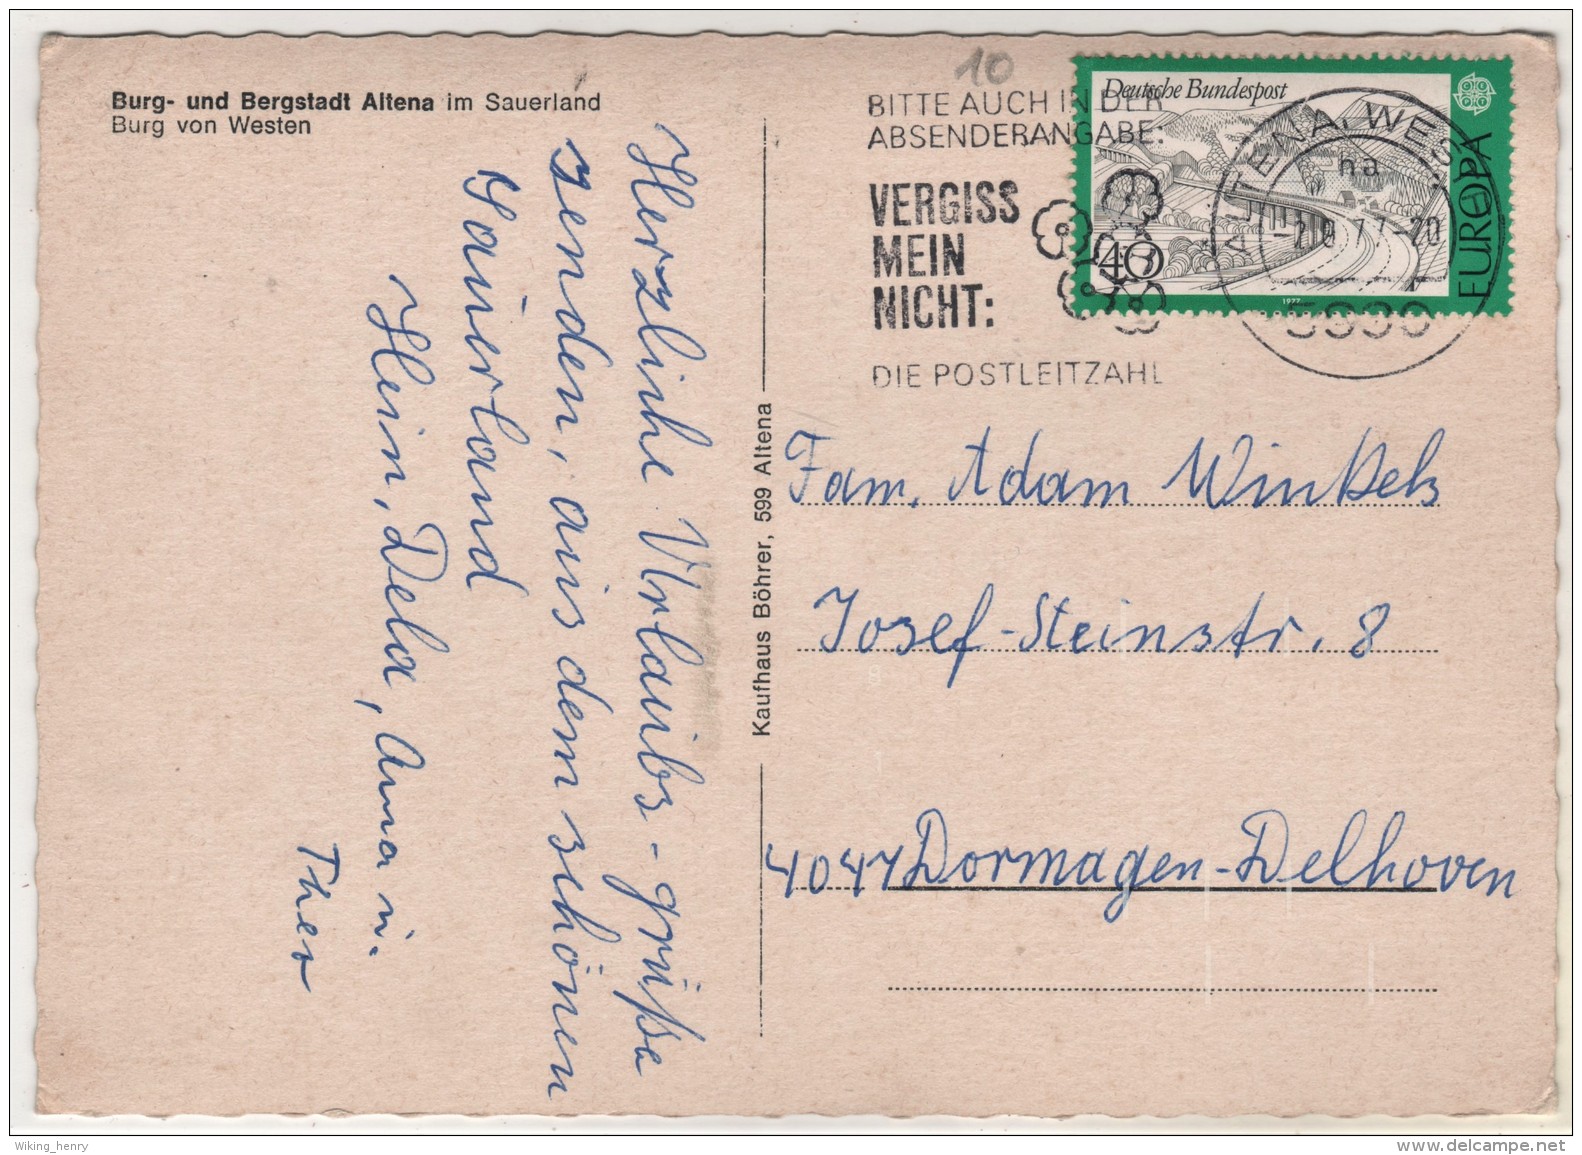 Burg- und Bergstadt Altena im Sauerland
Burg von Westen
10
BITTE AUCH IN DER
ABSENDERANGABE:
VERGISS
MEIN
NICHT:
DIE POSTLEITZAHL
Deutsche Bundespost
40
EUROPA
1977
ALTENA, WESTF
ha
77-20
Herzlihe Urlaubs-grüße
senden, aus dem schönen
Sauerland
Hein, Dela, Anna u.
Theo
Kaufhaus Böhrer, 599 Altena
Fam. Adam Winkels
Josef-Steinstr. 8
4047 Dormagen-Delhoven
Wiking_henry
www.delcampe.net